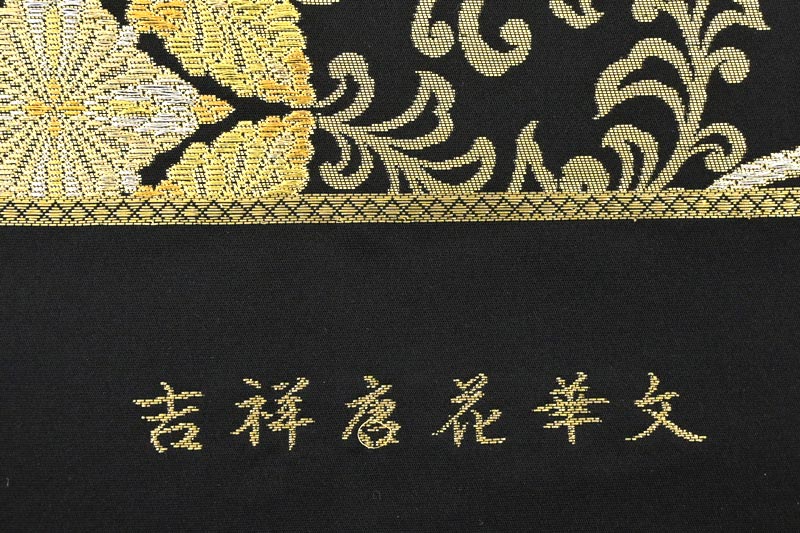 吉祥唐花華文